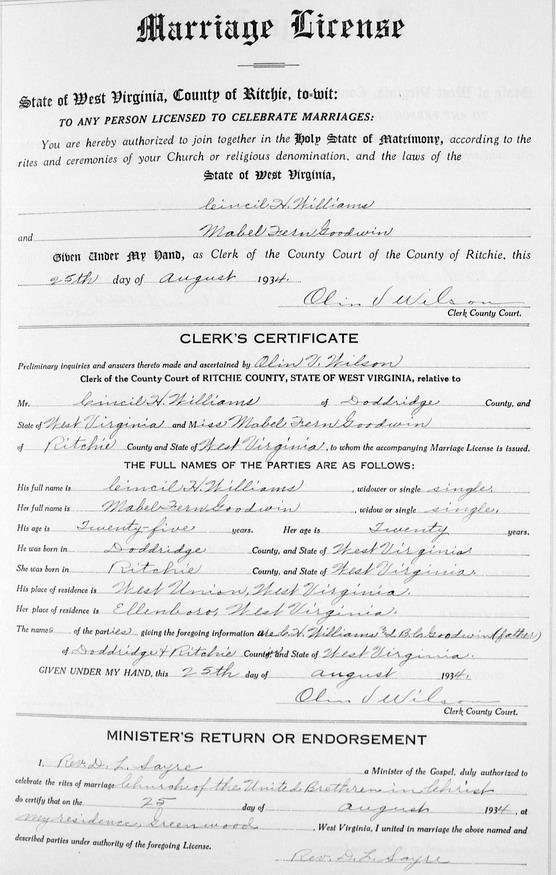 Marriage License
State of West Virginia, County of Ritchie, to-wit:
TO ANY PERSON LICENSED TO CELEBRATE MARRIAGES:
You are hereby authorized to join together in the Holy State of Matrimony, according to the
rites and ceremonies of your Church or religious denomination, and the laws of the
State of West Virginia,
Cincil H. Williams
and Mabel Fern Goodwin
Given Under My Hand, as Clerk of the County Court of the County of Ritchie, this
25th day of August 1934.
Olin V Wilson
Clerk County Court.
CLERK'S CERTIFICATE
Preliminary inquiries and answers thereto made and ascertained by Olin V. Wilson
Clerk of the County Court of RITCHIE COUNTY, STATE OF WEST VIRGINIA, relative to
Mr. Cincil H. Williams of Doddridge County, and
State of West Virginia and Miss Mabel Fern Goodwin
of Ritchie County and State of West Virginia, to whom the accompanying Marriage License is issued.
THE FULL NAMES OF THE PARTIES ARE AS FOLLOWS:
His full name is Cincil H. Williams, widower or single single.
Her full name is Mabel Fern Goodwin, widow or single single.
His age is Twenty-five years. Her age is Twenty years.
He was born in Doddridge County, and State of West Virginia.
She was born in Ritchie County, and State of West Virginia.
His place of residence is West Union, West Virginia.
Her place of residence is Ellenboro, West Virginia.
The names of the parties giving the foregoing information are C. H. Williams & B. C. Goodwin (father)
of Doddridge & Ritchie County, and State of West Virginia.
GIVEN UNDER MY HAND, this 25th day of August 1934.
Olin V Wilson
Clerk County Court.
MINISTER'S RETURN OR ENDORSEMENT
I, Rev. D. L. Sayre a Minister of the Gospel, duly authorized to
celebrate the rites of marriage Church of the United Brethren in Christ
do certify that on the 25 day of August 1934, at
My residence, Greenwood, West Virginia, I united in marriage the above named and
described parties under authority of the foregoing License.
Rev. D. L. Sayre